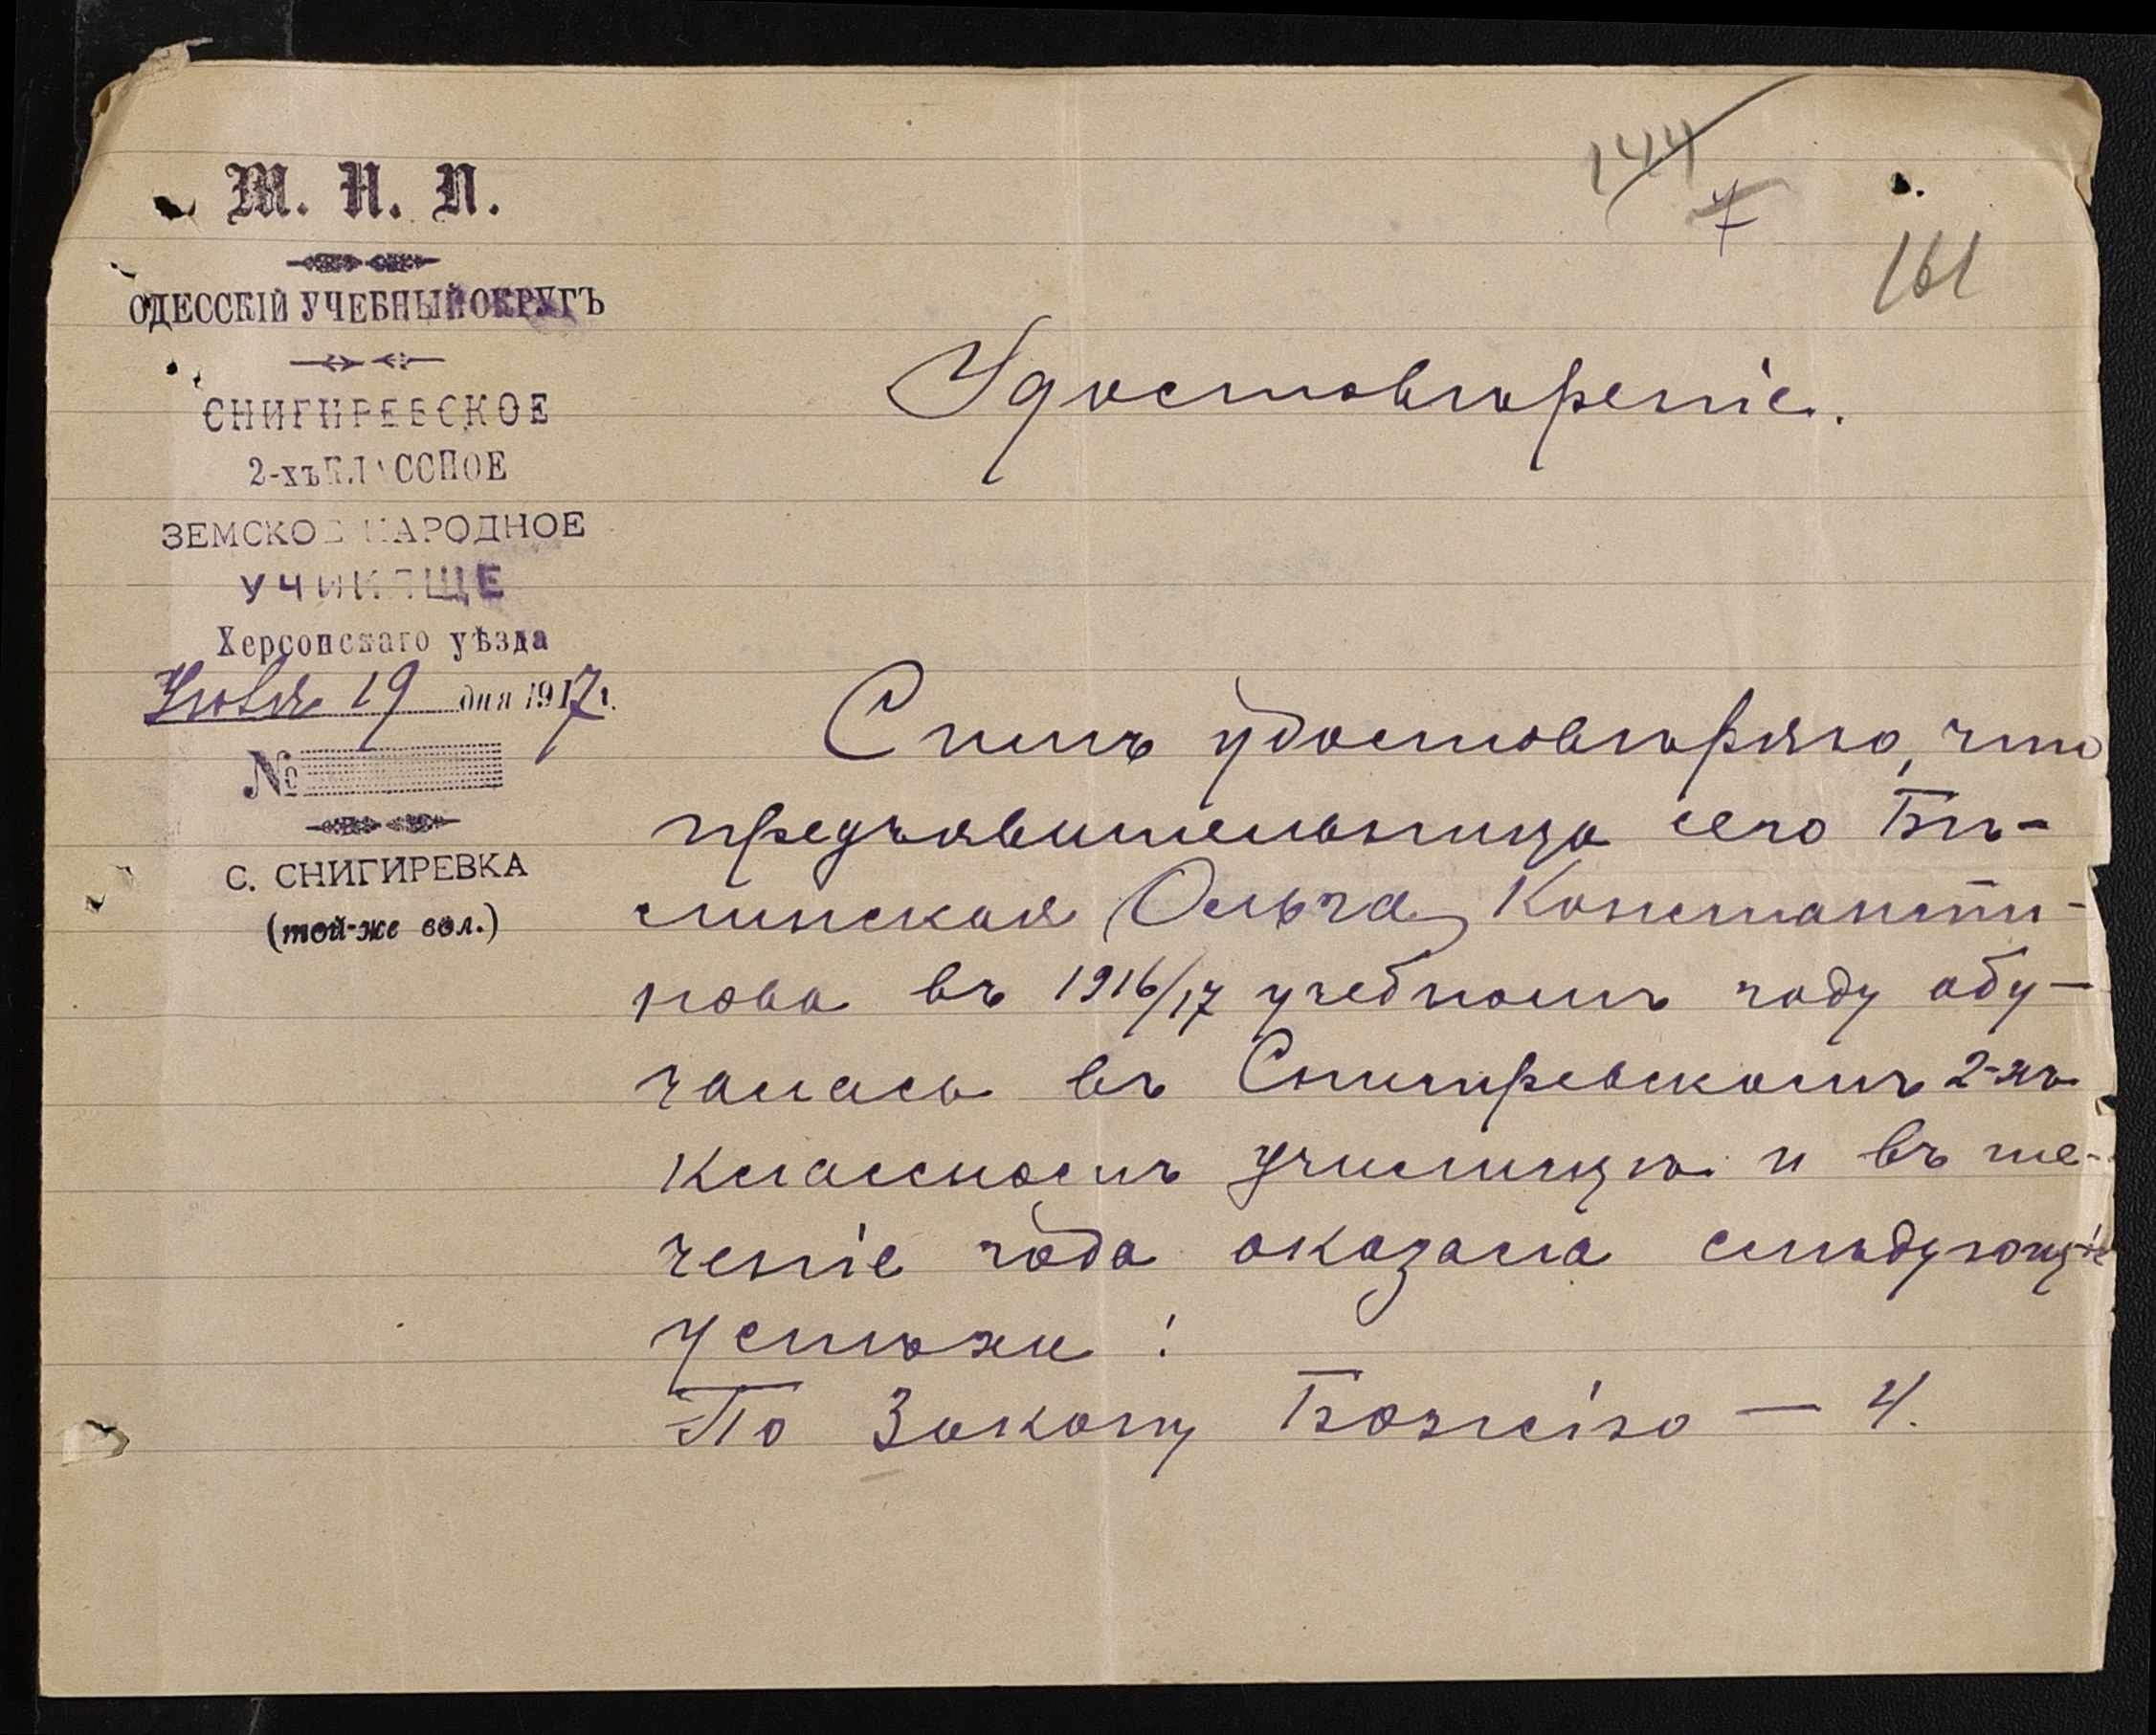 М. Н. П.
ОДЕССКІЙ УЧЕБНЫЙ ОКРУГЪ
СНИГИРЕВСКОЕ
2-хъ КЛАССНОЕ
ЗЕМСКОЕ НАРОДНОЕ
УЧИЛИЩЕ
Херсонскаго уѣзда
19 дня 1917 г.
№
С. СНИГИРЕВКА
(той-же вол.)
144
7
161
Удостовѣреніе.
Симъ удостовѣряю, что
предъявительница сего Бѣ-
линская Ольга Константи-
нова въ 1916/17 учебномъ году обу-
чалась въ Снигиревскомъ 2-хъ
классномъ училищѣ и въ те-
ченіе года оказала слѣдующіе
успѣхи:
По Закону Божію — 4.